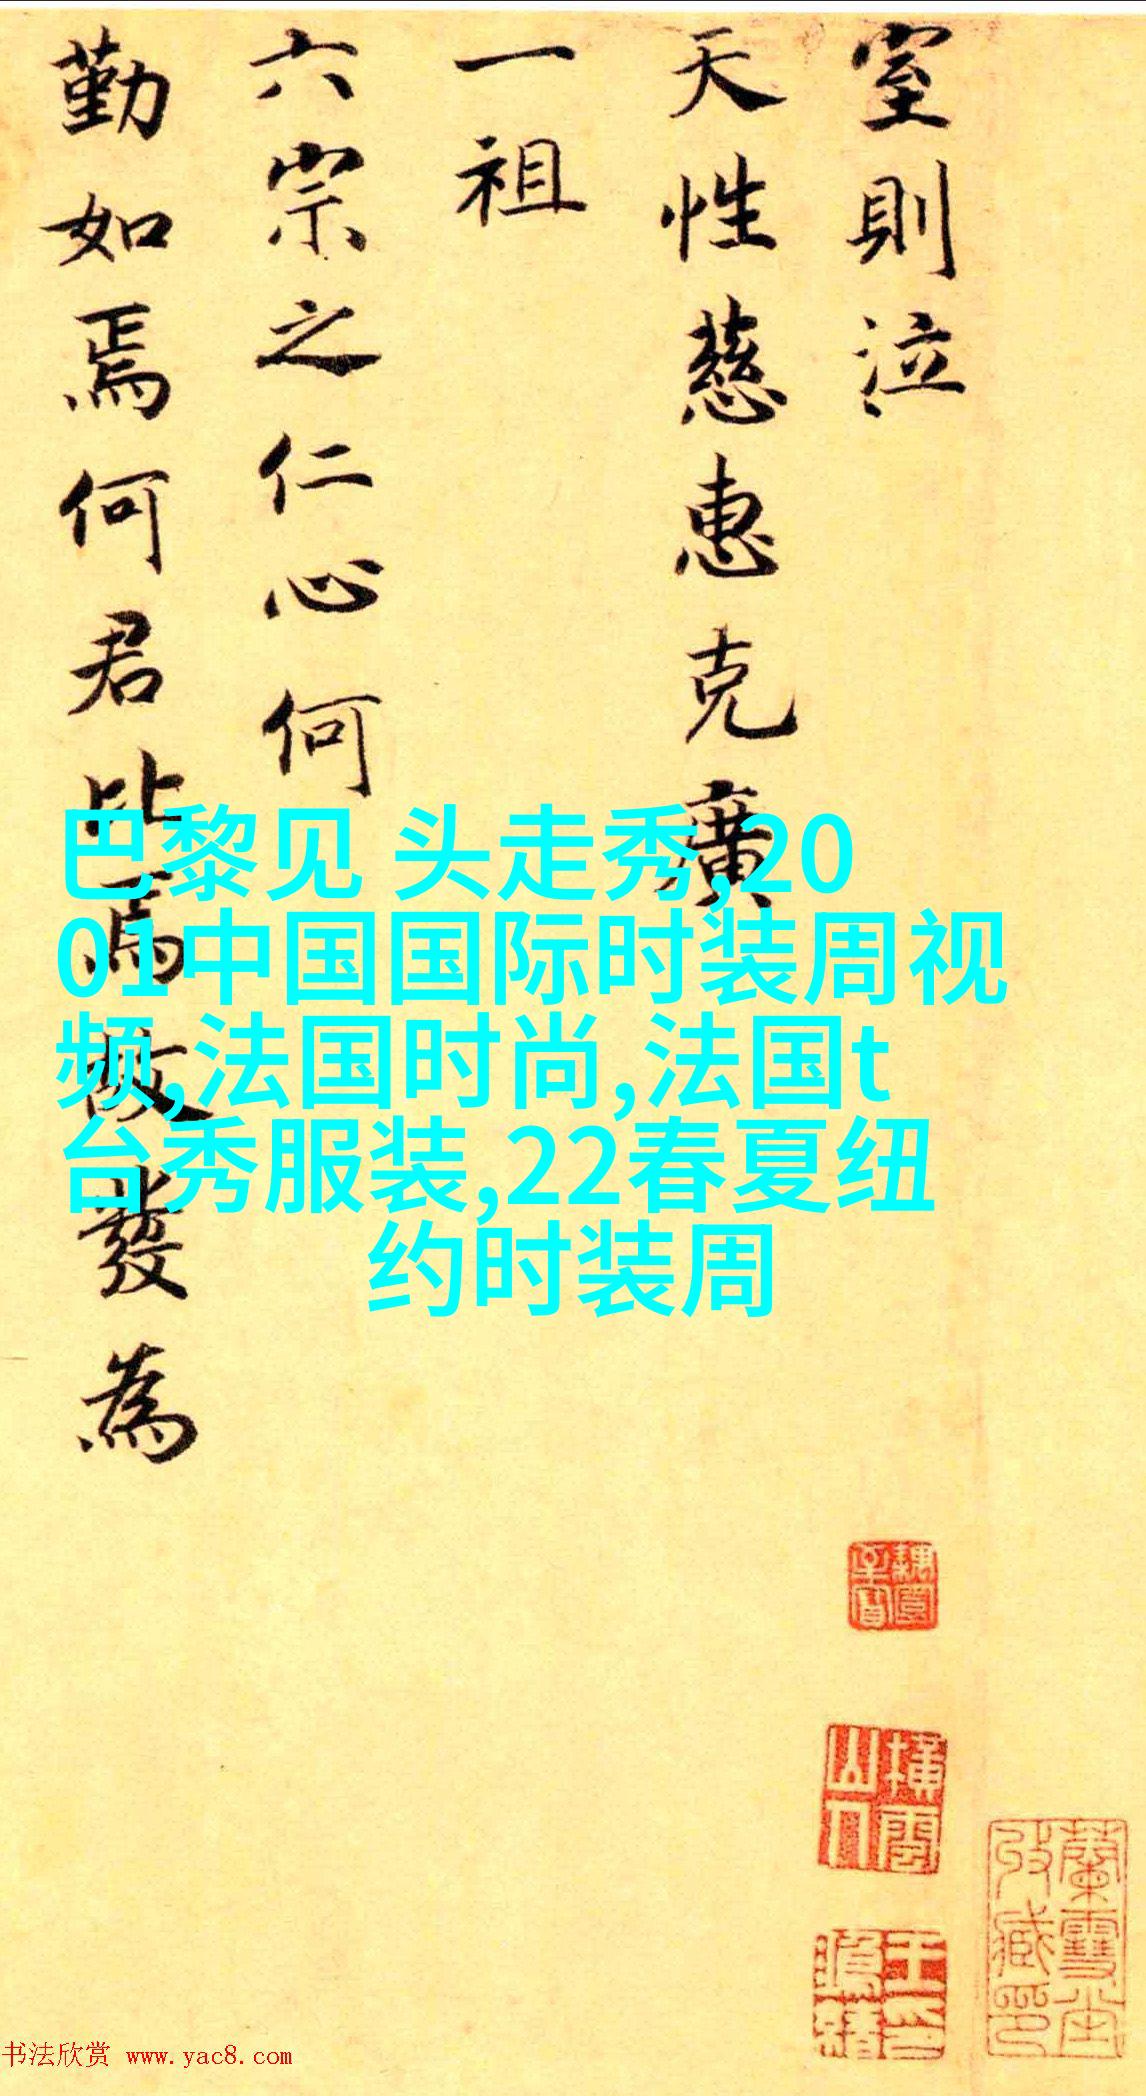 室則泣
天性慈惠克廣
一祖
六宗之仁心何
勤如焉何君比焉故發為
巴黎见 头走秀,20
01中国国际时装周视
频,法国时尚,法国t
台秀服装,22春夏纽
约时装周
王印
蘭雪堂
收藏印
书法欣赏 www.yac8.com